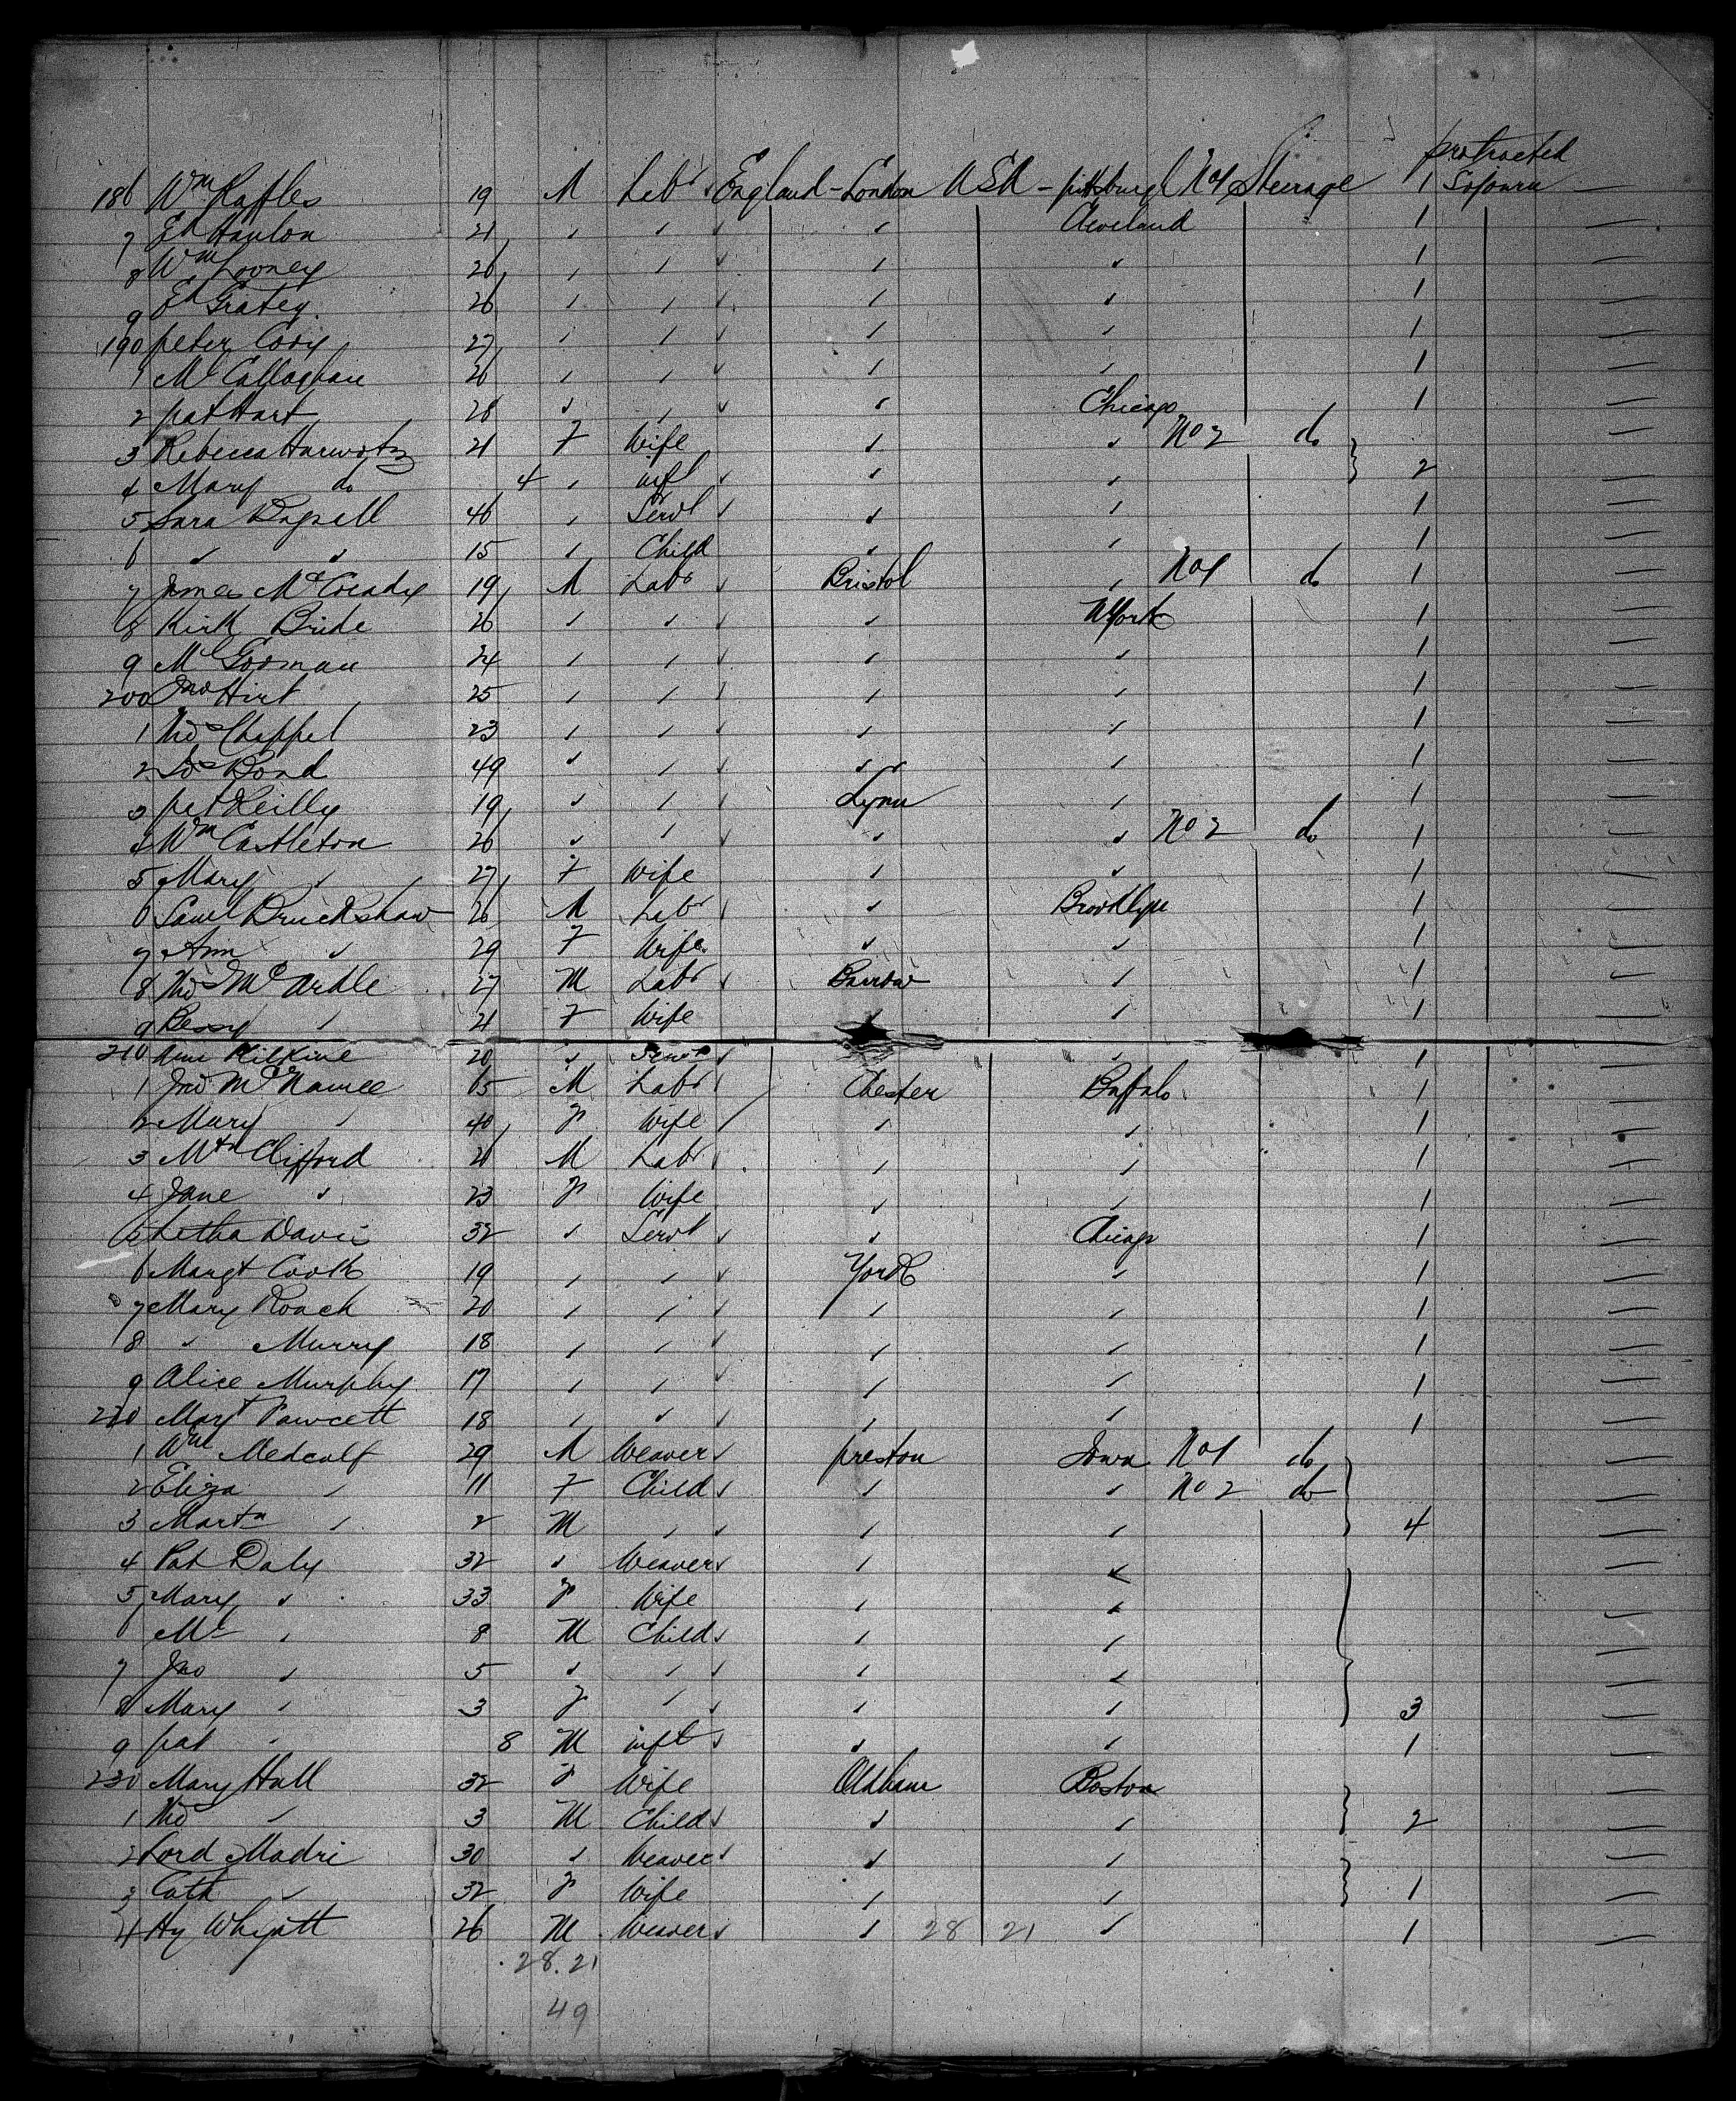 protracted
186 Wm Raffles 19 M Labr England - London USA - pittsburgh No 1 Steerage 1 Sojourn —
7 Ed Hanlon 21 " " " Cleveland 1 —
8 Wm Looney 26 " " " " 1 —
9 Ed 26 " " " " 1 —
190 peter 27 " " " " 1 —
1 Ml Callaghan 26 " " " " 1 —
2 pat Hart 28 " " " Chicago 1 —
3 Rebecca Hurwitz 21 F Wife " " No 2 do —
4 Mary do 4 " inft " " 2 —
5 Sara 46 " Servt " " 1 —
6 " " 15 " Child " " 1 —
7 James McCready 19 M Labr Bristol " No 1 do 1 —
8 Kirk Bride 26 " " " NYork 1 —
9 Ml Gorman 24 " " " " 1 —
200 Jno Hirt 25 " " " " 1 —
1 Thos Chappel 23 " " " " 1 —
2 Jos Bond 49 " " " " 1 —
3 pat Reilly 19 " " Lynn " 1 —
4 Wm Castleton 26 " " " " No 2 do 1 —
5 Mary " 27 F Wife " " 1 —
6 Saml Bruckshaw 26 M Labr " Brooklyn 1 —
7 Ann " 29 F Wife " " 1 —
8 Thos McArdle 27 M Labr Barrow " 1 —
9 Bessy " 21 F Wife " " 1 —
210 Ann Kilkine 20 " Servt " 1 —
1 Jno McNamee 65 M Labr Chester Buffalo 1 —
2 Mary " 40 F Wife " " 1 —
3 Mtn Clifford 21 M Labr " " 1 —
4 Jane " 23 F Wife " " 1 —
5 Letha Davis 32 " Servt " Chicago 1 —
6 Margt Cook 19 " " York " 1 —
7 Mary Roach 20 " " " " 1 —
8 " Murry 18 " " " " 1 —
9 Alice Murphy 17 " " " " 1 —
220 Margt Fawcett 18 " " " " 1 —
1 Wm Medcalf 29 M Weaver preston Iowa No 1 do —
2 Eliza " 11 F Child " " No 2 do —
3 Martn " 2 M " " " 4 —
4 Pat Daly 32 " Weaver " " —
5 Mary " 33 F Wife " " —
6 Ml " 8 M Child " " —
7 Jno " 5 " " " " —
8 Mary " 3 F " " " 3 —
9 pat " 8 M inft " " 1 —
230 Mary Hall 32 F Wife Oldham Boston —
1 Thos " 3 M Child " " 2 —
2 Ford Madri 30 " Weaver " " —
3 Cath " 32 F Wife " " 1 —
4 Hy Whyatt 26 M Weaver " 28 21 " 1 —
28.21
49